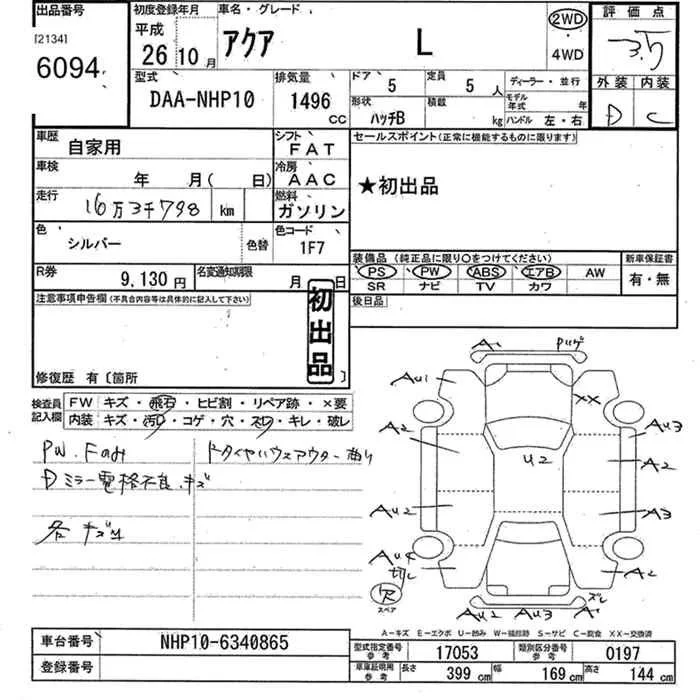 出品番号
[2134]
6094
初度登録年月
平成
26 10 月
車名・グレード
アクア L
2WD
・
4WD
評価点
3.5
外装 内装
D C
型式
DAA-NHP10
排気量
1496 cc
ドア 5
定員 5 人
ディーラー・並行
形状 ハッチB
積載 kg
モデル年式 年
ハンドル 左・右
車歴
自家用
シフト
FAT
車検 年 月( 日)
冷房
AAC
走行
16万3千798 km
燃料
ガソリン
色
シルバー
色替
色コード
1F7
R券
9,130 円
名変通知期限
月 日
セールスポイント(正常に機能するものに限ります)
★初出品
装備品 (純正品に限り○をつけてください)
PS PW ABS エアB AW
SR ナビ TV カワ
新車保証書
有・無
後日品
注意事項申告欄(不具合内容等は具体的に記入して下さい)
初出品
修復歴 有〔箇所 〕
検査員記入欄
FW キズ・飛石・ヒビ割・リペア跡・×要
内装 キズ・汚れ・コゲ・穴・スレ・キレ・破レ
PW. Fのみ
Dミラー電格不良.キズ
各キズ
A1 Pハゲ
AU1 XX
A2 U2 AU3
A2
AU2 A3
AU4
切レ A2
欠
スペア
AU2 AU3 A1
ズレ
A-キズ E-エクボ U-凹み W-補修跡 S-サビ C-腐食 XX-交換済
車台番号 NHP10-6340865
登録番号
型式指定番号 参考 17053
類別区分番号 参考 0197
車庫証明用 参考 長さ 399 cm 幅 169 cm 高さ 144 cm